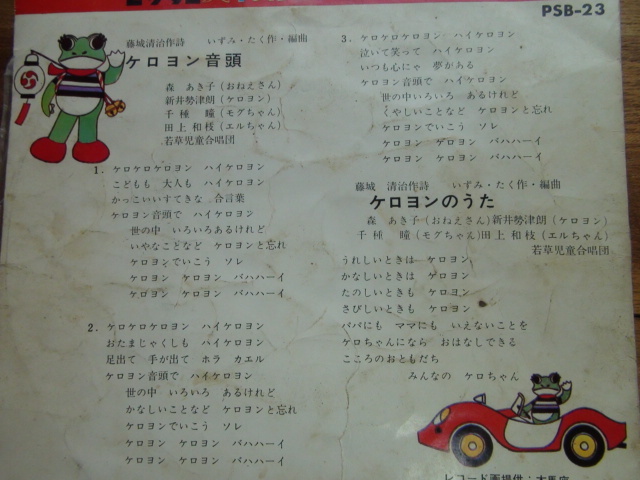 PSB-23
藤城清治作詩　いずみ・たく作・編曲
ケロヨン音頭
森　あき子(おねえさん)
新井勢津朗(ケロヨン)
千種　瞳(モグちゃん)
田上和枝(エルちゃん)
若草児童合唱団
1. ケロケロケロヨン　ハイケロヨン
こどもも　大人も　ハイケロヨン
かっこいいすてきな　合言葉
ケロヨン音頭で　ハイケロヨン
世の中　いろいろあるけれど
いやなことなど　ケロヨンと忘れ
ケロヨンでいこう　ソレ
ケロヨン　ケロヨン　バハハーイ
ケロヨン　ケロヨン　バハハーイ
2. ケロケロケロヨン　ハイケロヨン
おたまじゃくしも　ハイケロヨン
足出て　手が出て　ホラ　カエル
ケロヨン音頭で　ハイケロヨン
世の中　いろいろ　あるけれど
かなしいことなど　ケロヨンと忘れ
ケロヨンでいこう　ソレ
ケロヨン　ケロヨン　バハハーイ
ケロヨン　ケロヨン　バハハーイ
3. ケロケロケロヨン　ハイケロヨン
泣いて笑って　ハイケロヨン
いつも心にゃ　夢がある
ケロヨン音頭で　ハイケロヨン
世の中いろいろ　あるけれど
くやしいことなど　ケロヨンと忘れ
ケロヨンでいこう　ソレ
ケロヨン　ケロヨン　バハハーイ
ケロヨン　ケロヨン　バハハーイ
藤城　清治作詩　いずみ・たく作・編曲
ケロヨンのうた
森　あき子(おねえさん)新井勢津朗(ケロヨン)
千種　瞳(モグちゃん)田上和枝(エルちゃん)
若草児童合唱団
うれしいときは　ケロヨン
かなしいときは　ケロヨン
たのしいときも　ケロヨン
さびしいときも　ケロヨン
パパにも　ママにも　いえないことを
ケロちゃんになら　おはなしできる
こころのおともだち
みんなの　ケロちゃん
レコード画提供：木馬座